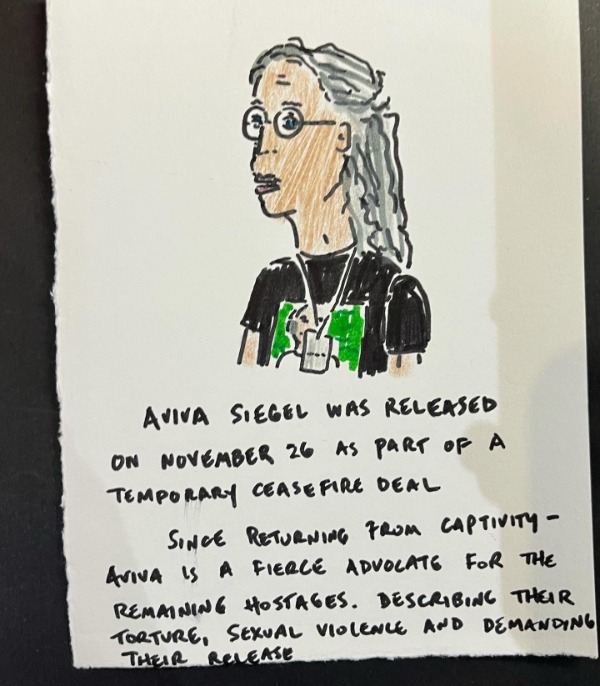 AVIVA SIEGEL WAS RELEASED
ON NOVEMBER 26 AS PART OF A
TEMPORARY CEASEFIRE DEAL
SINCE RETURNING FROM CAPTIVITY-
AVIVA IS A FIERCE ADVOCATE FOR THE
REMAINING HOSTAGES. DESCRIBING THEIR
TORTURE, SEXUAL VIOLENCE AND DEMANDING
THEIR RELEASE